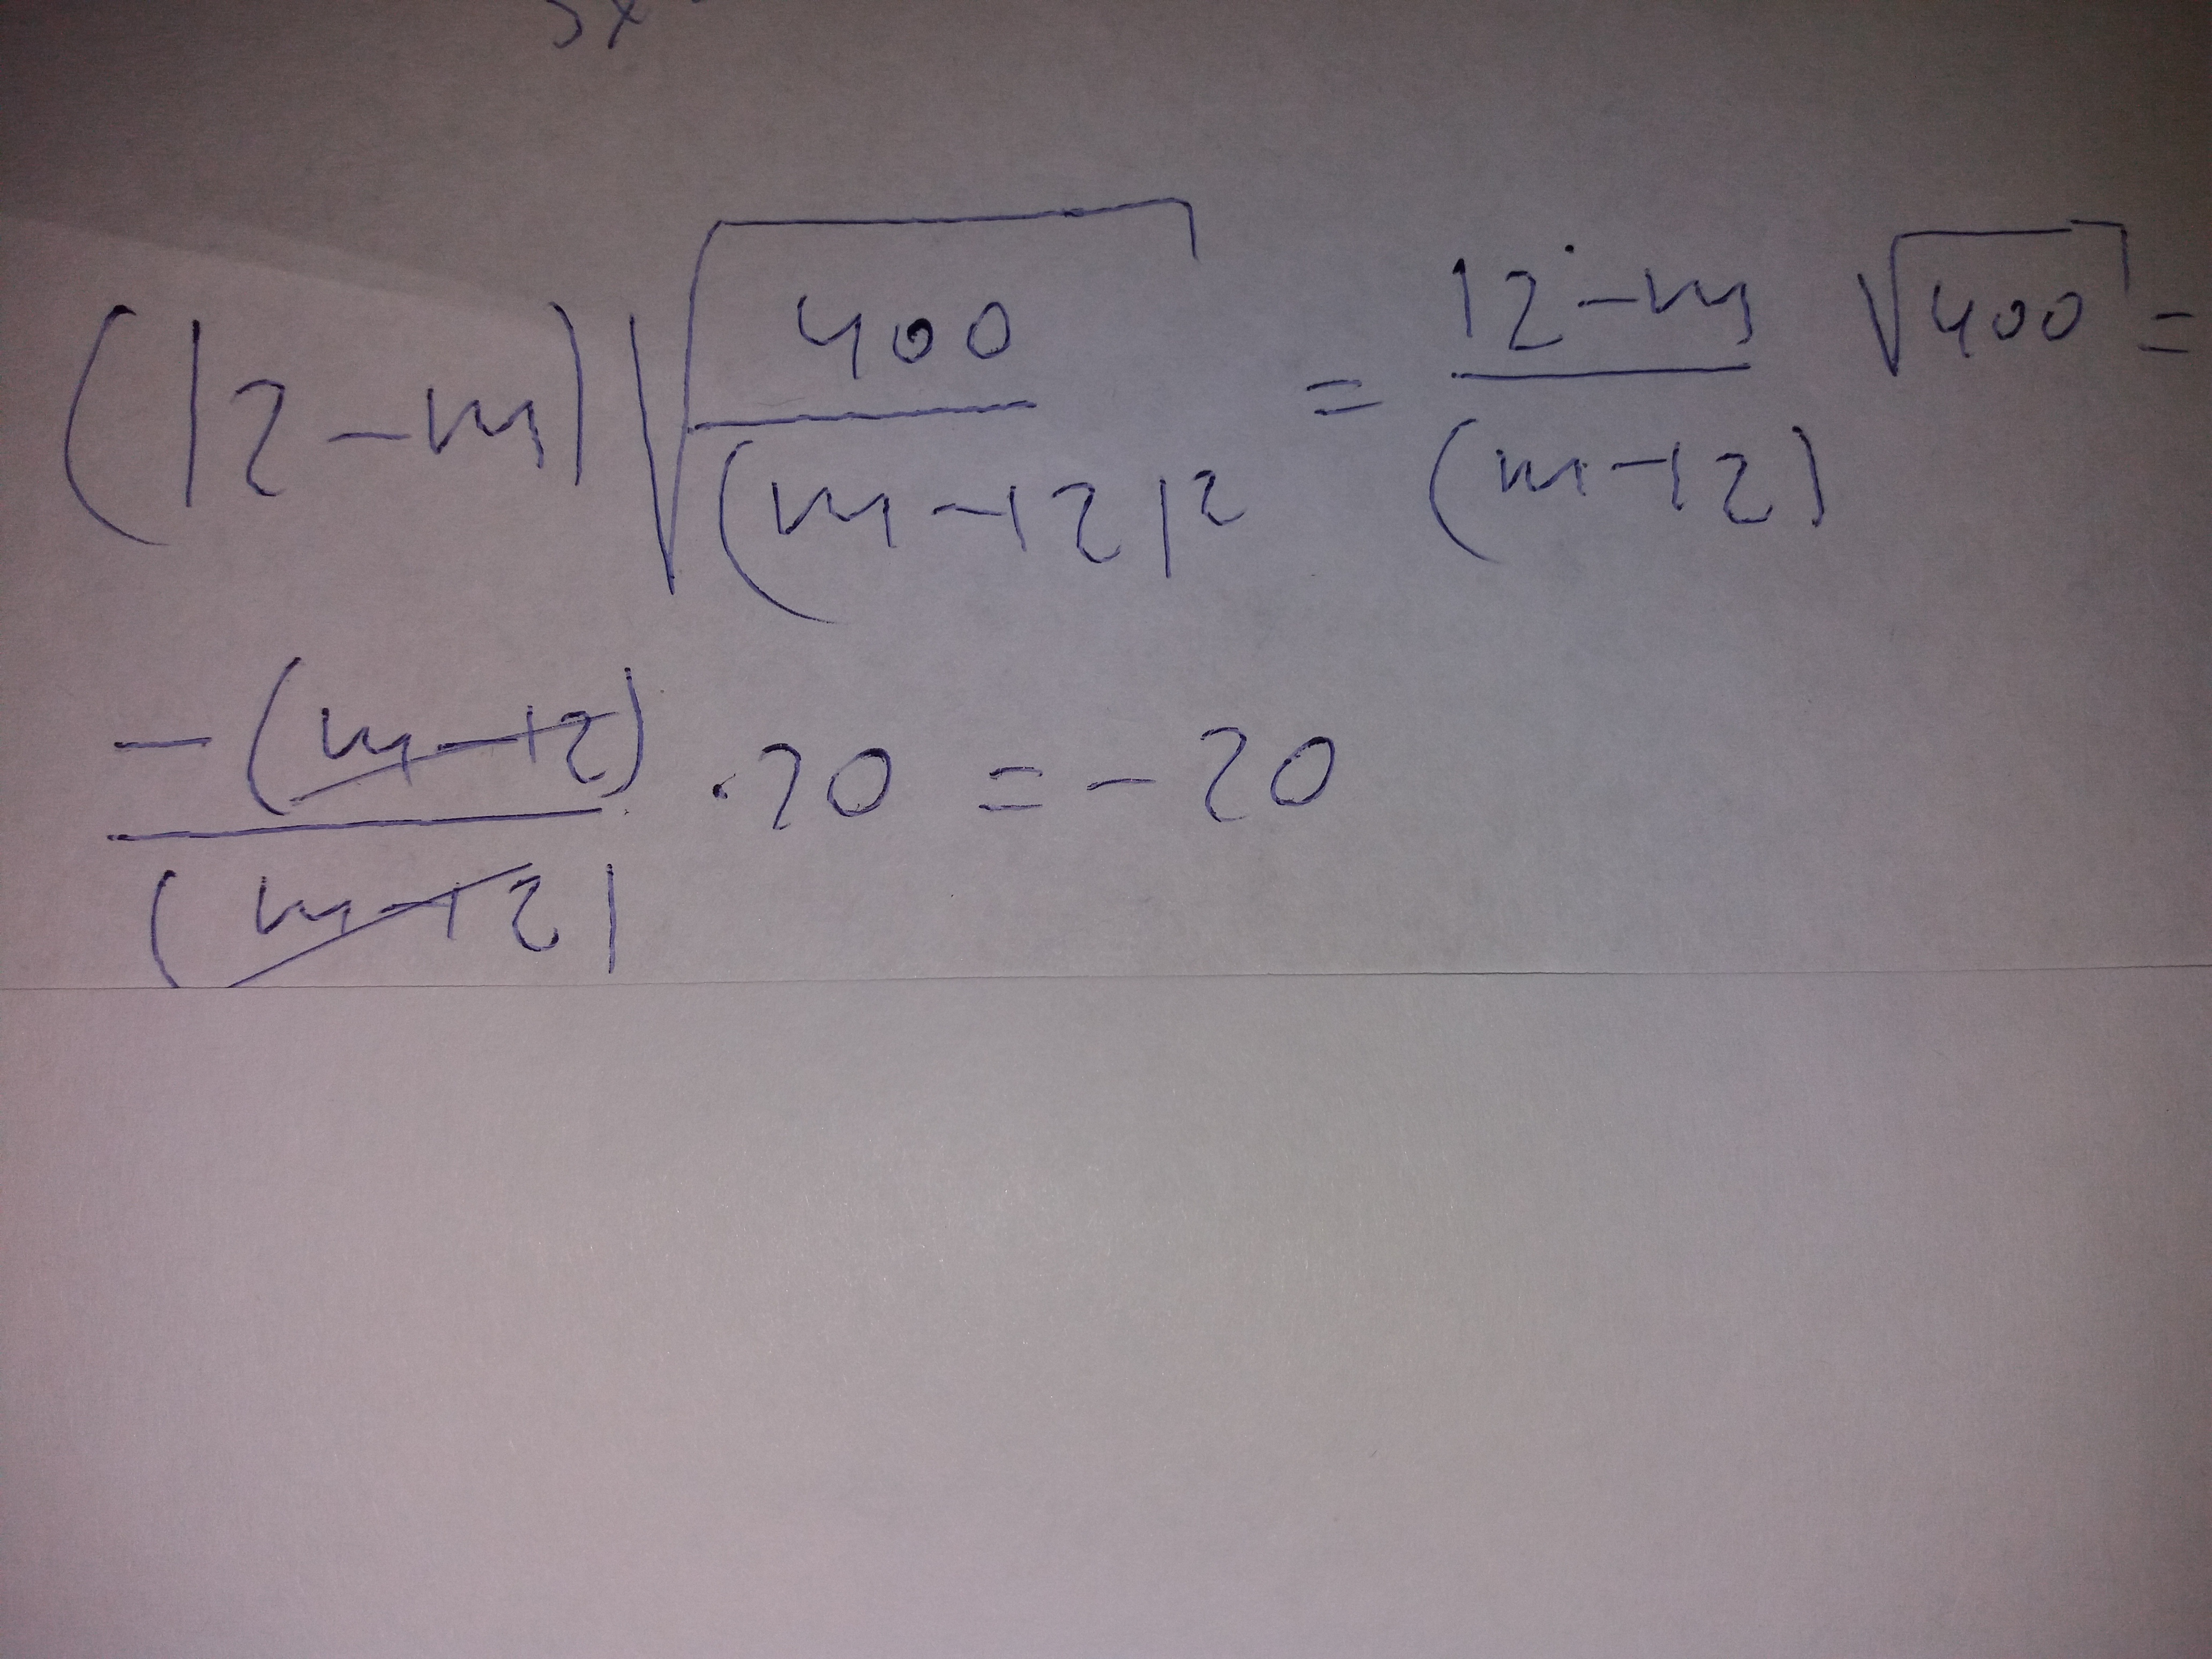 3x
(12-m)√(400/(m-12)²) = (12-m)/(m-12) √400 =
-(m-12)/(m-12) · 20 = -20